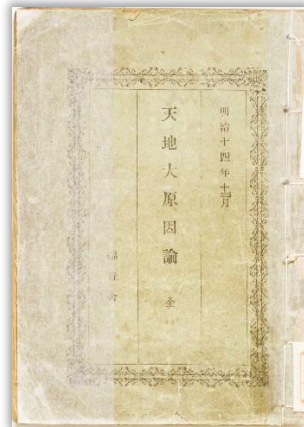 明治十四年十一月
天地人原因論 全